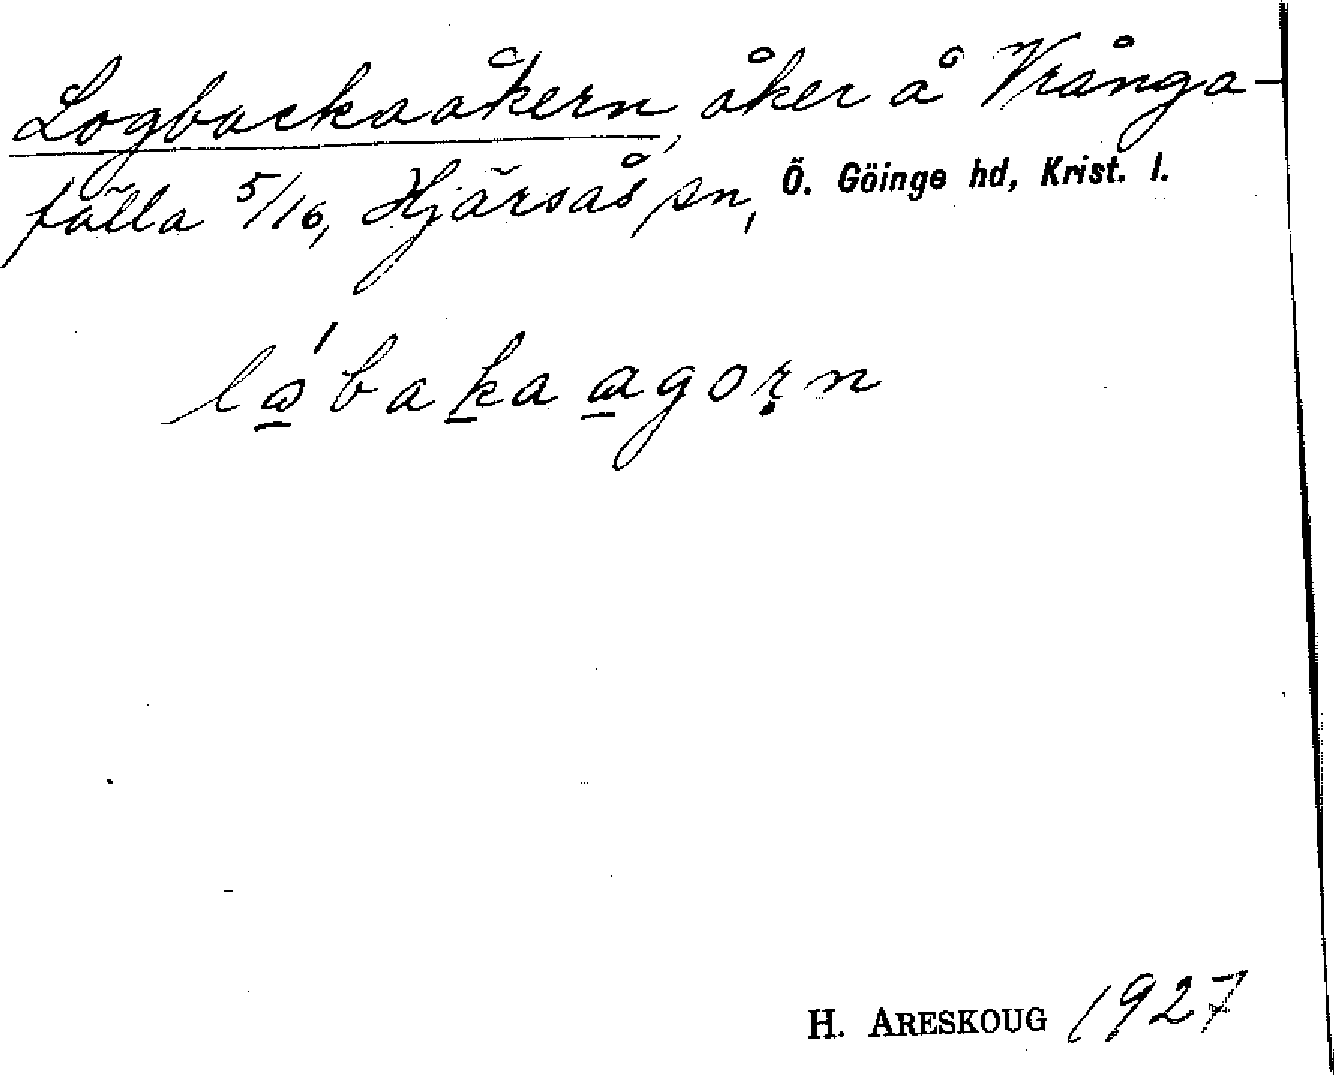 Logbackaåkern, åker å Vrånga-
fälla 5/16, Hjärsås sn, Ö. Göinge hd, Krist. l.
H. ARESKOUG 1927